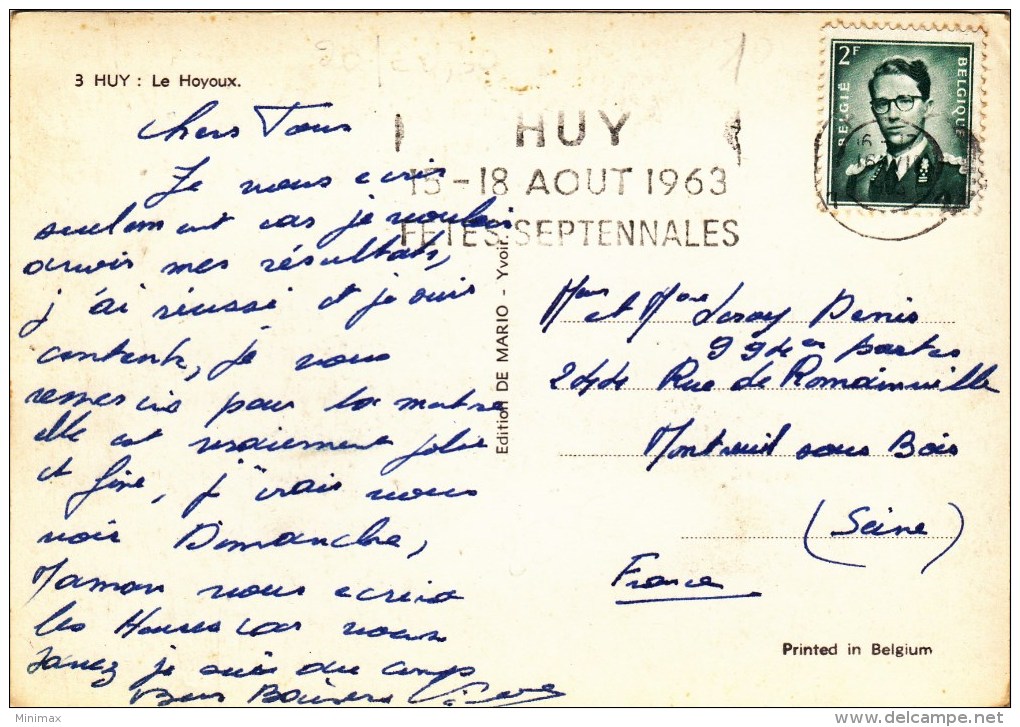 3 HUY : Le Hoyoux.
HUY
15-18 AOUT 1963
FETES SEPTENNALES
2F
BELGIË BELGIQUE
Chers Tous
Je vous écris
seulement car je voulais
avoir mes résultats,
j'ai réussi et je suis
contente, je vous
remercie pour la montre
elle est vraiement jolie
et fine, j'irais vous
voir Dimanche,
Maman vous écrira
les Heures car vous
savez je suis du camp
Bons Baisers
Edition DE MARIO - Yvoir.
et Leroy Denis
244 Rue de Romainville
Montreuil sous Bois
(Seine)
France
Printed in Belgium
Minimax
www.delcampe.net